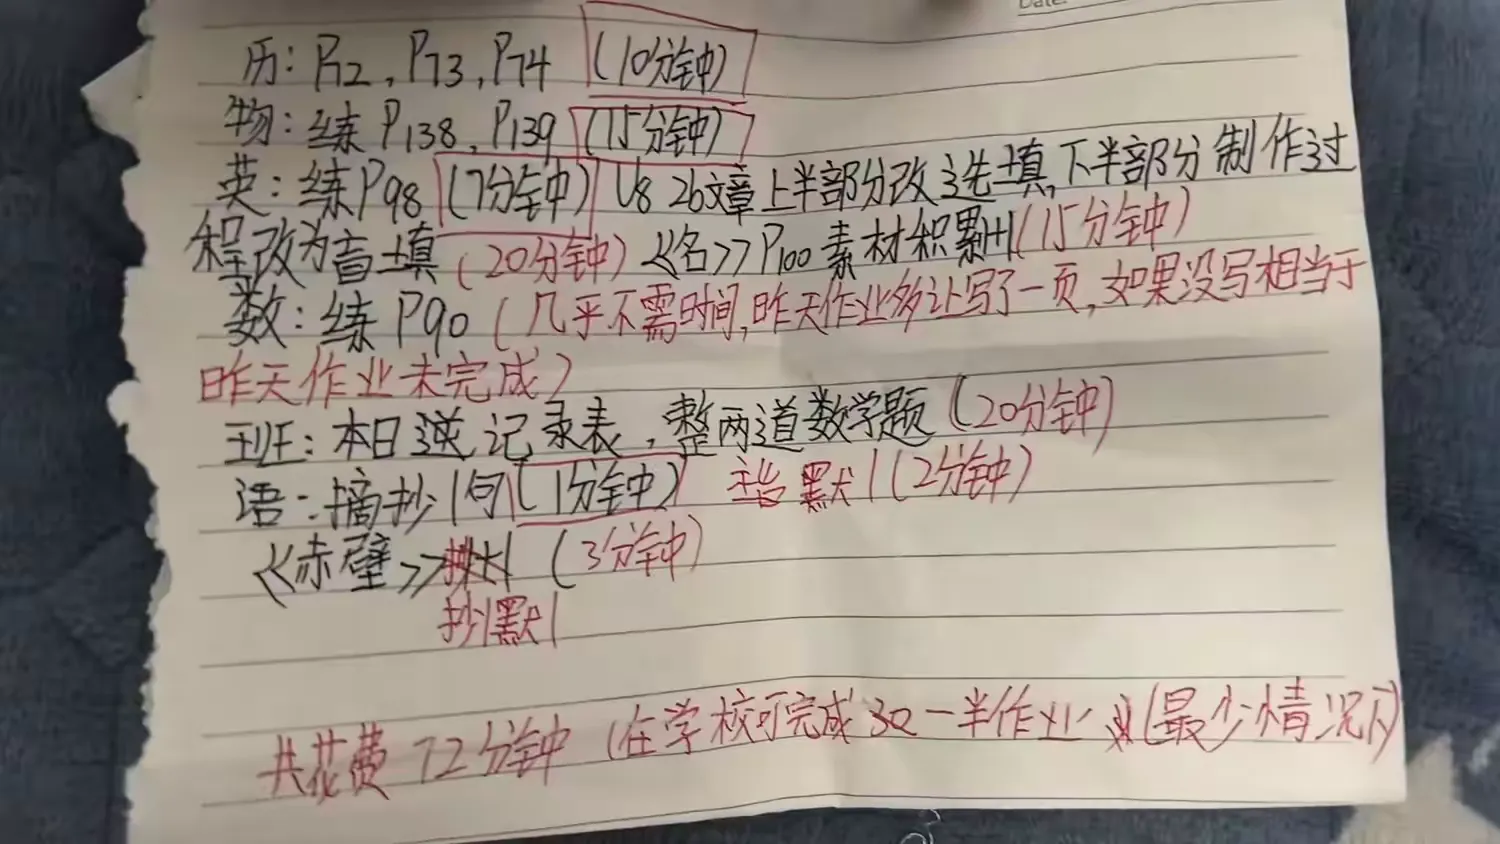 Date:
历: P72, P73, P74 (10分钟)
物: 练 P138, P139 (15分钟)
英: 练P98 (7分钟) U8 2b文章上半部分改选填,下半部分制作过
程改为盲填(20分钟)《名》P100素材积累(15分钟)
数: 练 P90 (几乎不需时间,昨天作业多让写了一页,如果没写相当于
昨天作业未完成)
班: 本日 记录表, 整两道数学题 (20分钟)
语: 摘抄1句(1分钟) 默1(2分钟)
《赤壁》 (3分钟)
抄1默1
共花费 72分钟 (在学校可完成 一半作业 (最少情况下)